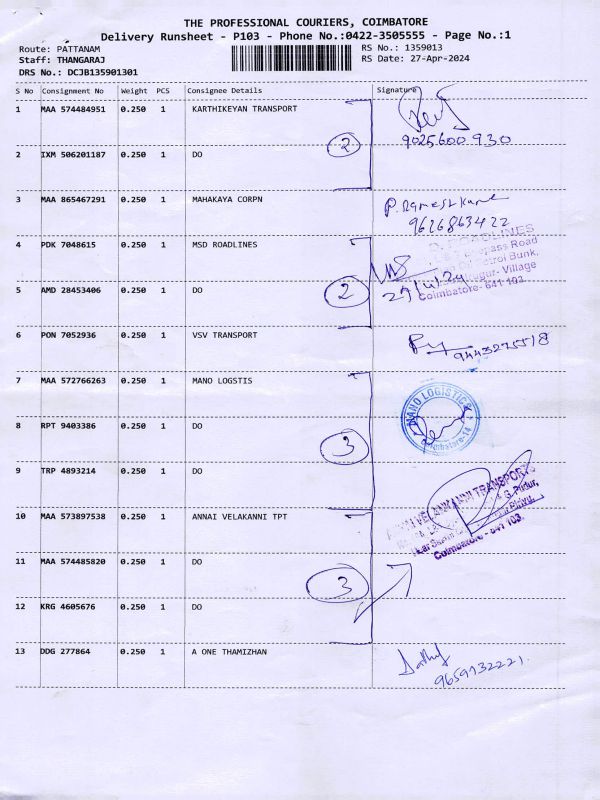 THE PROFESSIONAL COURIERS, COIMBATORE
Delivery Runsheet - P103 - Phone No.:0422-3505555 - Page No.:1
Route: PATTANAM RS No.: 1359013
Staff: THANGARAJ RS Date: 27-Apr-2024
DRS No.: DCJB135901301
S No Consignment No Weight PCS Consignee Details Signature
1 MAA 574484951 0.250 1 KARTHIKEYAN TRANSPORT
9025600930
2 IXM 506201187 0.250 1 DO 2
3 MAA 865467291 0.250 1 MAHAKAYA CORPN P. Rameshkumar
9626863422
4 PDK 7048615 0.250 1 MSD ROADLINES
ROADLINES
Road
Bunk,
Village
Coimbatore- 641 103.
5 AMD 28453406 0.250 1 DO 2 27/4/24
6 PON 7052936 0.250 1 VSV TRANSPORT
9443275518
7 MAA 572766263 0.250 1 MANO LOGSTIS
MANO LOGISTICS
Coimbatore-14
8 RPT 9403386 0.250 1 DO 3
9 TRP 4893214 0.250 1 DO
10 MAA 573897538 0.250 1 ANNAI VELAKANNI TPT
VELANKANNI TRANSPORTS
Coimbatore - 641 103.
11 MAA 574485820 0.250 1 DO 3
12 KRG 4605676 0.250 1 DO
13 DDG 277864 0.250 1 A ONE THAMIZHAN
9659732221.